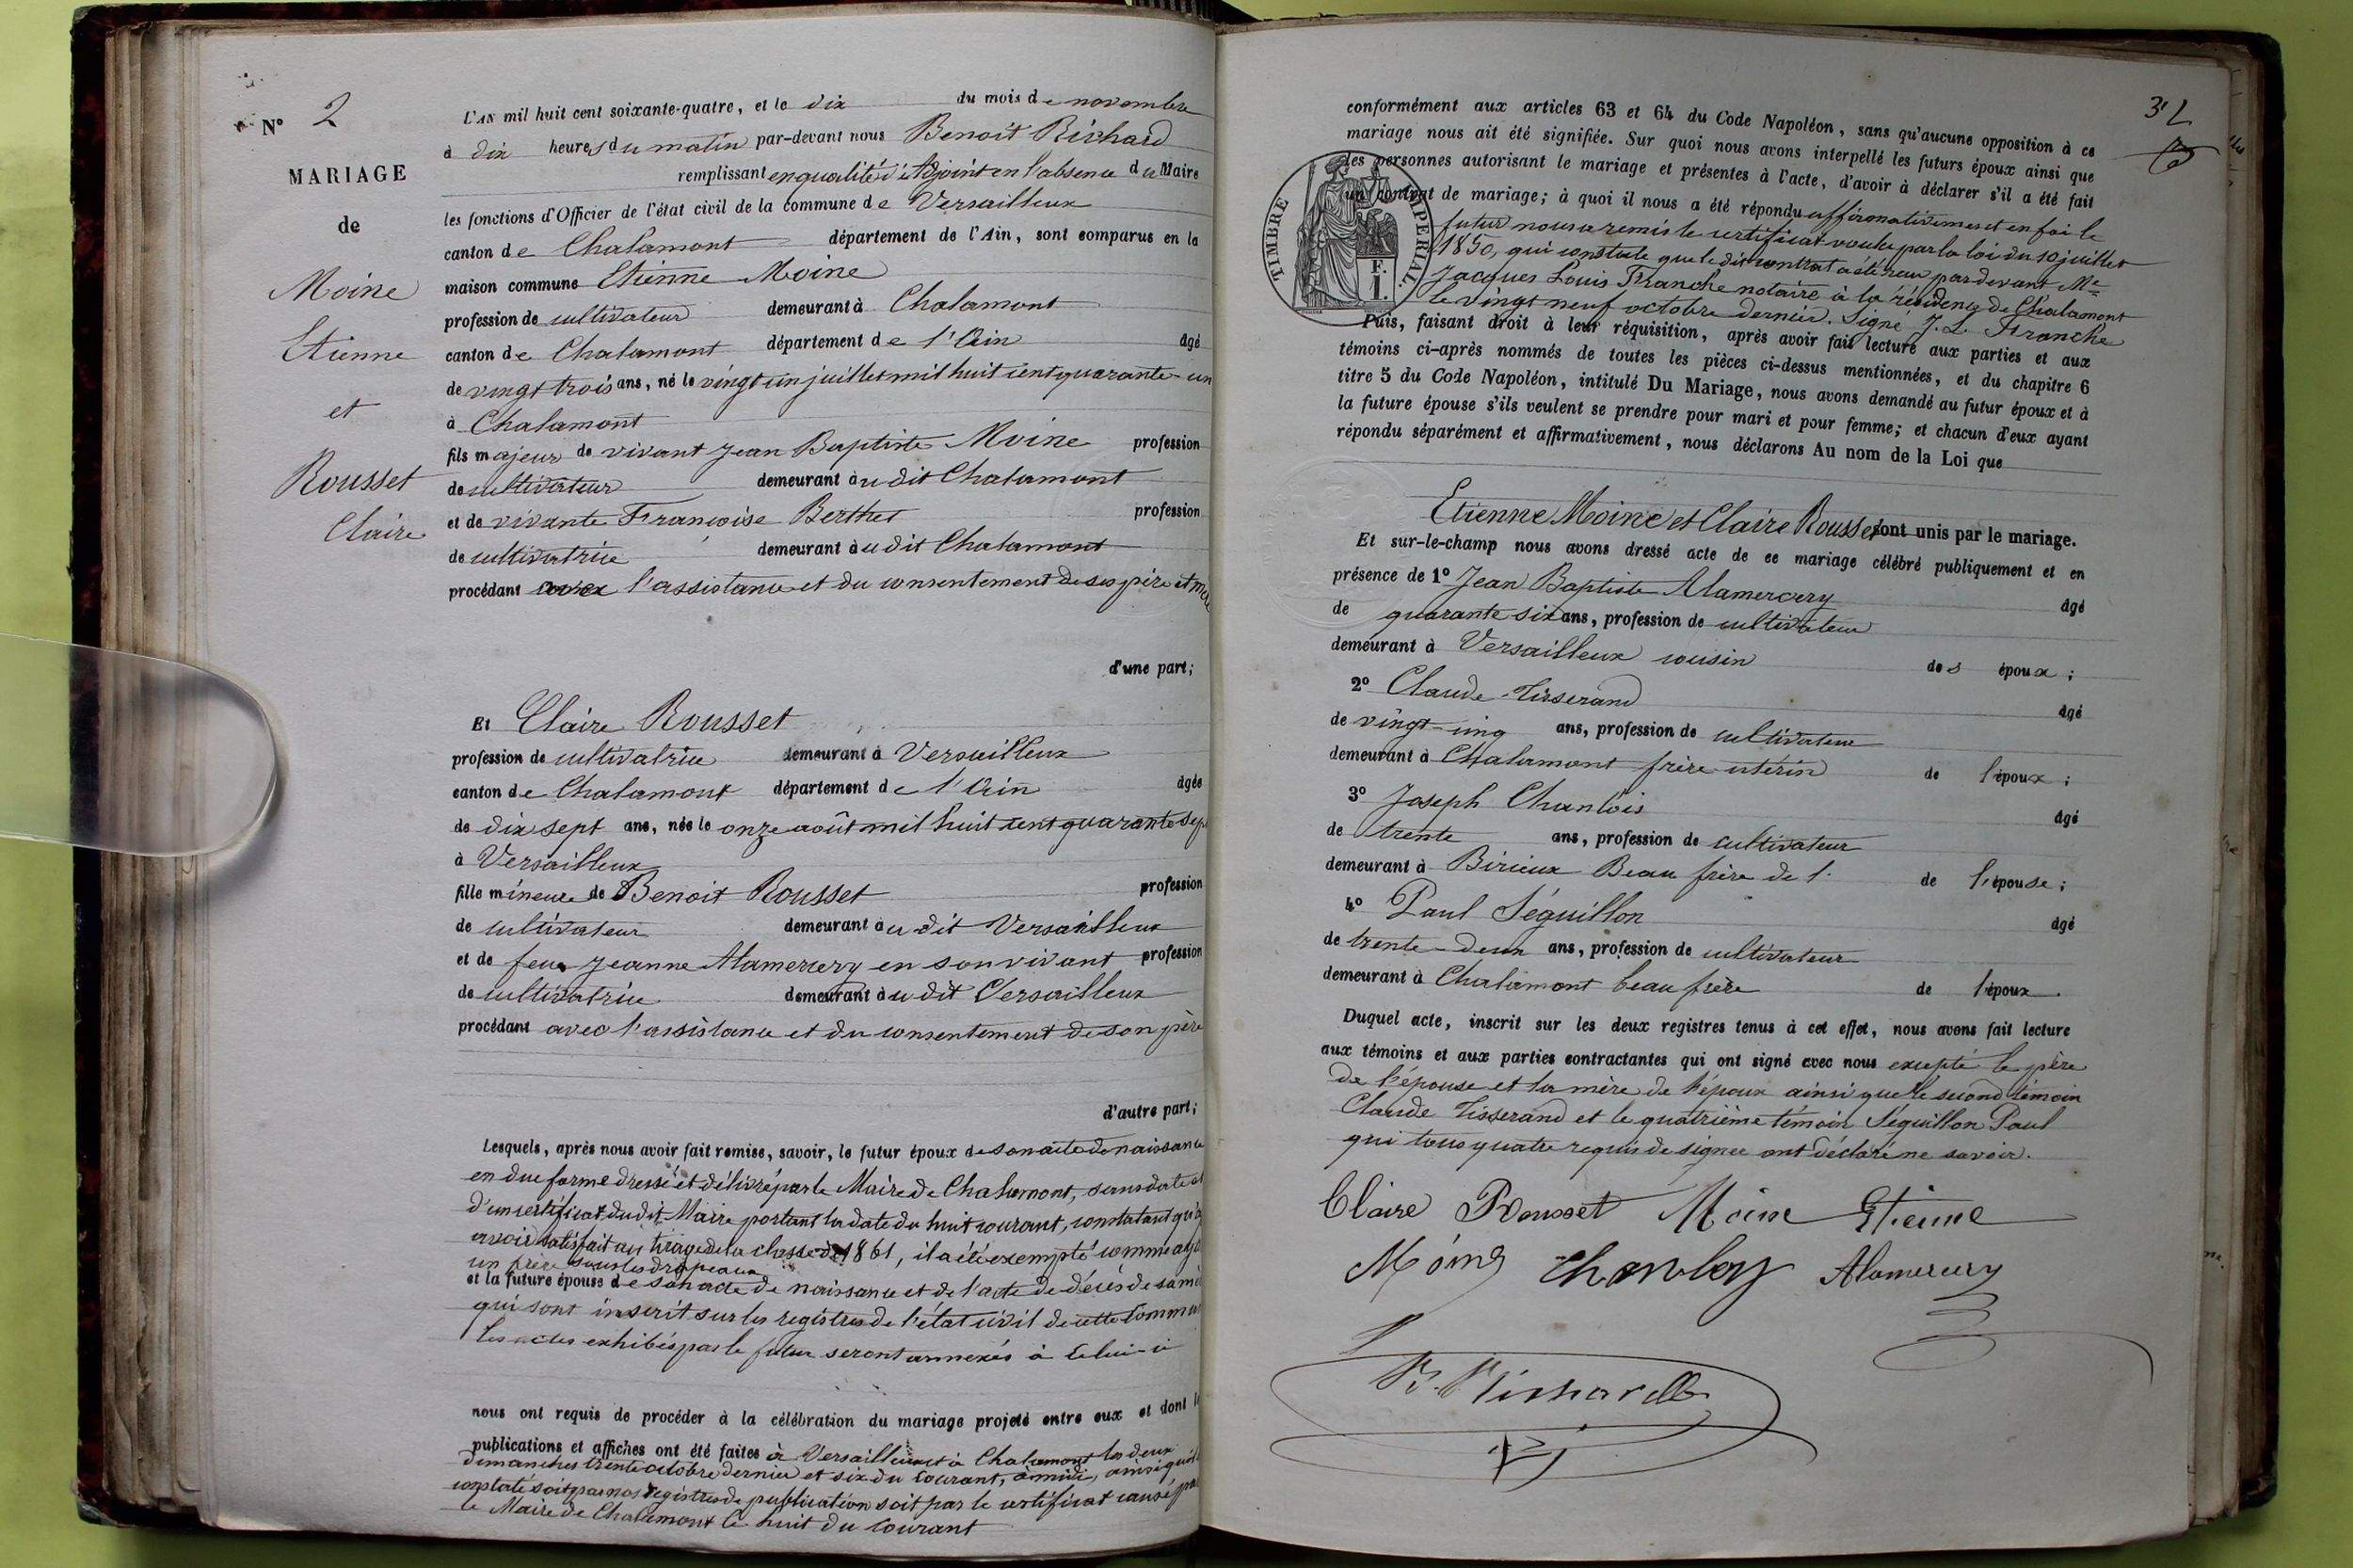 N° 2
MARIAGE
de
Moine
Etienne
et
Rousset
Claire
L'AN mil huit cent soixante-quatre, et le dix du mois de novembre
à dix heures du matin par-devant nous Benoit Richard
remplissant en qualité d'Adjoint en l'absence du Maire
les fonctions d'Officier de l'état civil de la commune de Versailleux
canton de Chalamont département de l'Ain, sont comparus en la
maison commune Etienne Moine
profession de cultivateur demeurant à Chalamont
canton de Chalamont département de l'Ain âgé
de vingt trois ans, né le vingt un juillet mil huit cent quarante-un
à Chalamont
fils majeur de vivant Jean Baptiste Moine profession
de cultivateur demeurant audit Chalamont
et de vivante Françoise Berthet profession
de cultivatrice demeurant audit Chalamont
procédant avec l'assistance et du consentement de ses père et mère
d'une part;
Et Claire Rousset
profession de cultivatrice demeurant à Versailleux
canton de Chalamont département de l'Ain âgée
de dix sept ans, née le onze août mil huit cent quarante sept
à Versailleux
fille mineure de Benoit Rousset profession
de cultivateur demeurant audit Versailleux
et de feue Jeanne Alamercery en son vivant profession
de cultivatrice demeurant audit Versailleux
procédant avec l'assistance et du consentement de son père
d'autre part;
Lesquels, après nous avoir fait remise, savoir, le futur époux de son acte de naissance
en due forme dressé et délivré par le Maire de Chalamont, sans date et
d'un certificat dudit Maire portant la date du huit courant, constatant qu'
avoir satisfait au tirage de la classe de 1861, il a été exempté comme ayant
un frère sous les drapeaux
et la future épouse de son acte de naissance et de l'acte de décès de sa mère
qui sont inscrit sur les registres de l'état civil de cette commune
Les actes exhibés par le futur seront annexés à celui-ci
nous ont requis de procéder à la célébration du mariage projeté entre eux et dont les
publications et affiches ont été faites à Versailleux et à Chalamont les deux
dimanches trente octobre dernier et six du courant, à midi, ainsi qu'il
constaté soit par nos registres de publication soit par le certificat causé par
le Maire de Chalamont le huit du courant
32
conformément aux articles 63 et 64 du Code Napoléon, sans qu'aucune opposition à ce
mariage nous ait été signifiée. Sur quoi nous avons interpellé les futurs époux ainsi que
les personnes autorisant le mariage et présentes à l'acte, d'avoir à déclarer s'il a été fait
un contrat de mariage; à quoi il nous a été répondu affirmativement en foi le
futur nous a remis le certificat voulu par la loi du 10 juillet
1850, qui constate que le dit contrat a été reçu par devant Me
Jacques Louis Franche notaire à la résidence de Chalamont
le vingt neuf octobre dernier. Signé J. L. Franche
TIMBRE IMPERIAL
F. I.
Puis, faisant droit à leur réquisition, après avoir fait lecture aux parties et aux
témoins ci-après nommés de toutes les pièces ci-dessus mentionnées, et du chapitre 6
titre 5 du Code Napoléon, intitulé Du Mariage, nous avons demandé au futur époux et à
la future épouse s'ils veulent se prendre pour mari et pour femme; et chacun d'eux ayant
répondu séparément et affirmativement, nous déclarons Au nom de la Loi que
Etienne Moine et Claire Rousset sont unis par le mariage.
Et sur-le-champ nous avons dressé acte de ce mariage célébré publiquement et en
présence de 1° Jean Baptiste Alamercery âgé
de quarante six ans, profession de cultivateur
demeurant à Versailleux cousin des époux;
2° Claude Tisserand âgé
de vingt-cinq ans, profession de cultivateur
demeurant à Chalamont frère utérin de l'époux;
3° Joseph Chanlois âgé
de trente ans, profession de cultivateur
demeurant à Birieux Beau frère de l. de l'épouse;
4° Paul Séguillon âgé
de trente-deux ans, profession de cultivateur
demeurant à Chalamont beau frère de l'époux.
Duquel acte, inscrit sur les deux registres tenus à cet effet, nous avons fait lecture
aux témoins et aux parties contractantes qui ont signé avec nous excepté le père
de l'épouse et la mère de l'époux ainsi que le second témoin
Claude Tisserand et le quatrième témoin Séguillon Paul
qui tous quatre requis de signer ont déclaré ne savoir.
Claire Rousset Moine Etienne
Moine Chanloy Alamercery
B. Richard